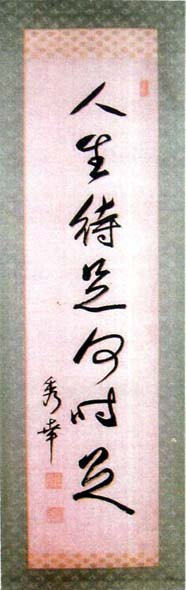 人生待足何时足
秀幸